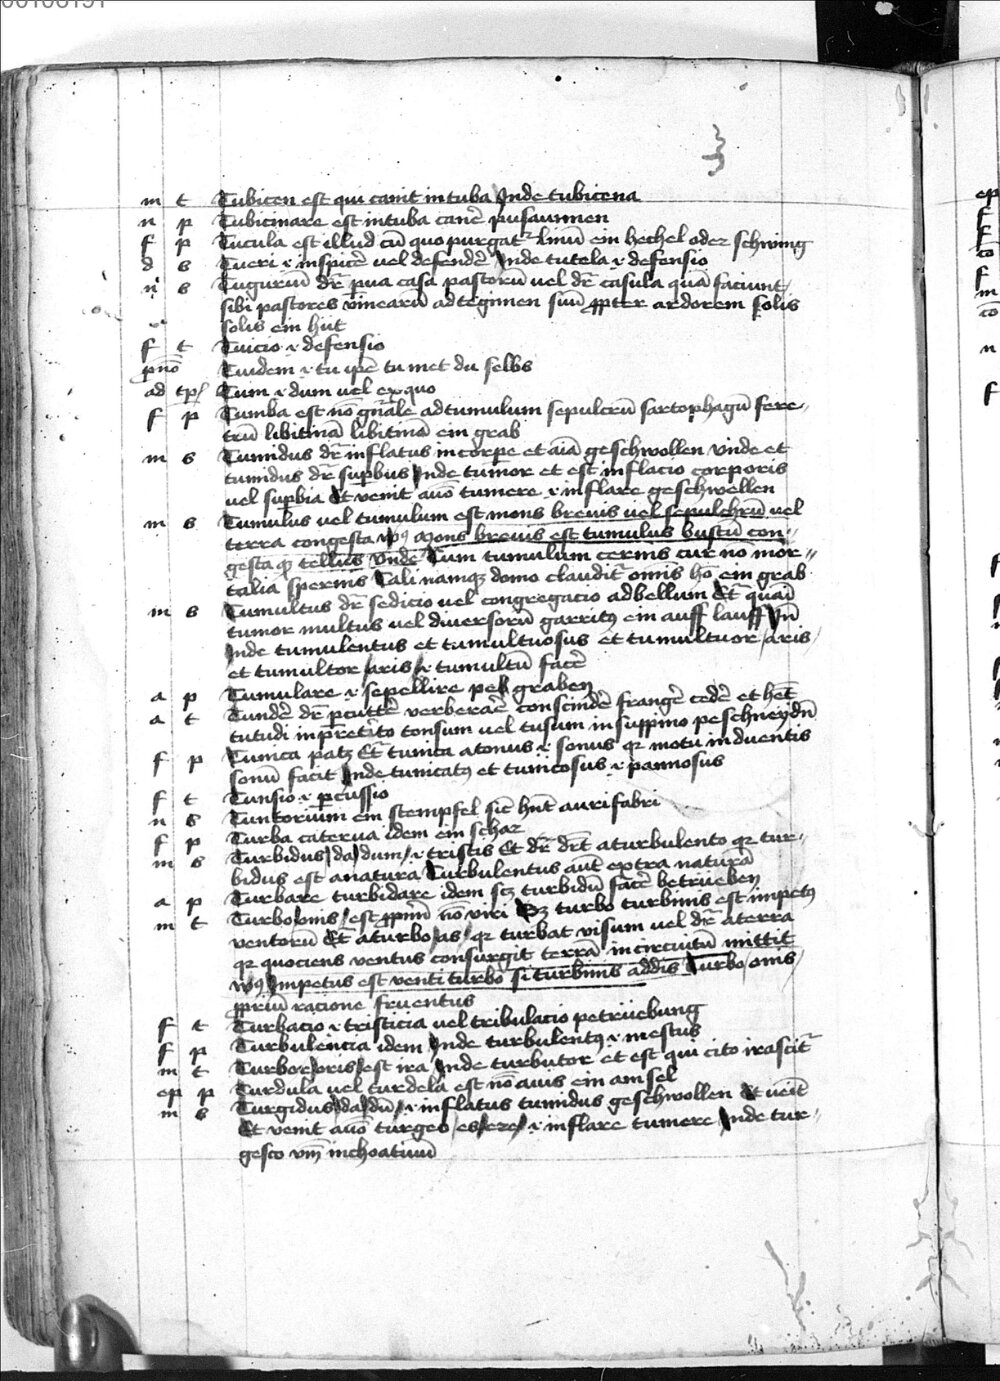 m t Tubicen est qui canit in tuba Inde tubicena
n p Tubicinare est in tuba canē pusaunnen
f p Tucula est illud cū quo purgatr linū ein hechel oder schwing
d s Tueri .i. inspicē uel defendē Inde tutela .i. defensio
n s Tuguriū dr̄ pua casa pastorū uel dr̄ casula quā faciunt
sibi pastores vinearū ad tegimen suū ꝓpter ardorem solis
solis ein hüt
f t Tuicio .i. defensio
pnō Tuidem .i. tu ipē tu met du selbs
ad tp̄ Tum .i. dum uel ex quo
f p Tumba est nō gn̄ale ad tumulum sepulcrū sartophagū fere-
trū libitinā libitinā ein grab
m s Tumidus dr̄ inflatus in corpe et aīa geschwollen vnde et
tumidus dr̄ supbus Inde tumor et est inflacio corporis
uel supbia Et venit a uō tumere .i. inflare geschwellen
m s Tumulus vel tumulum est mons breuis vel sepulchrū uel
terra congesta v̓ꝰ Mons breuis est tumulus bustū con-
gesta qꝫ tellus Vnde Cum tumulum cernis cur nō mor-
talia spernis Tali namqꝫ domo clauditr om̄is hō ein grab
m s Tumultus dr̄ sedicio uel congregacio ad bellum Et quāi
tumor multus uel diversorū garritꝰ ein auff lauff Vn̄
Inde tumulentus et tumultuosus et tumultuor /aris/
et tumultor /aris/ .i. tumultū facē
a p Tumulare .i. sepellire pegraben
a t Tundē dr̄ pcuttē verberarē conscindē frangē cedē et hēt
tutudi in pretito tonsum uel tusum in suppino peschneydn̄
f p Tunica patꝫ Et tunica a tonus .i. sonus qr motu induentis
sonū facit Inde tunicatꝰ et tunicosus .i. pannosus
f t Tunsio .i. pcussio
n s Tuntorium ein stempfel sic hn̄t aurifabri
f p Turba caterua idem ein schar
m s Turbidus /da/ dum/ .i. tristis Et dr̄ drt̄ a turbulento qr tur-
bidus est a natura Turbulentus aūt extra naturā
a p Turbare turbidare idem scꝫ turbidū facē betrüeben
m t Turbo /onis/ est ꝓpriū nō viri Sꝫ turbo turbinis est impetꝰ
ventorū Et a turbo /as/ qr turbat visum uel dr̄ a terra
qr quociens ventus consurgit terrā in circuitū mittit
v̓ꝰ Impetus est venti turbo si turbinis addis Turbo /onis/
ꝓpriū racione fruentus
f t Turbacio .i. tristicia uel tribulacio petrüebung
f p Turbulencia idem Inde turbulentꝰ .i. mestus
m t Turbor /oris/ est ira Inde turbutor et est qui cito irascitr
ep p Turdula uel turdela est nō auis ein amsel
m s Turgidus /da/ dū/ .i. inflatus tumidus geschwollen Et ueīt
Et venit a uō turgeo /es/ ere/ .i. inflare tumere Inde tur-
gesco vm̄ inchoatiuū